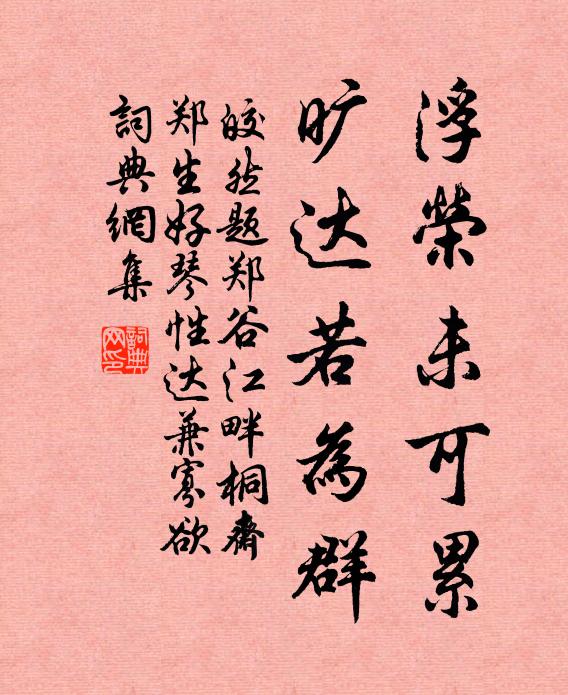 浮榮未可累
旷达若為群
皎然题郑谷江畔桐齋
郑生好琴性达兼寡欲
詞典網集
詞典网印